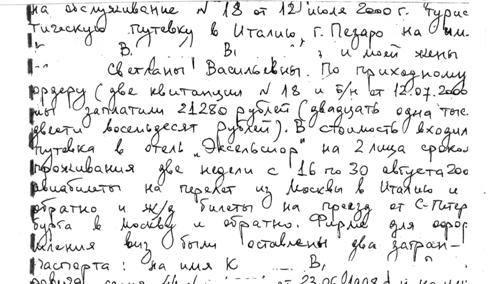 на обслуживание N 18 от 12 июля 2000 г. турис
тическую путевку в Италию г. Пезаро на им.
В. В. и моей жены
Светланы Васильевны. По приходному
ордеру (две квитанции N 18 и б/н от 12.07.2000
мы заплатили 21280 рублей (двадцать одна тыс.
двести восемьдесят рублей). В стоимость входил
путевка в отель "Эксельсиор" на 2 лица сроком
проживания две недели с 16 по 30 августа 200
авиабилеты на перелет из Москвы в Италию и
обратно и ж/д билеты на проезд от С-Питер
бурга в Москву и обратно. Фирме для офор
мления виз были оставлены два загран-
паспорта: на имя К В.
от 23.06.1998